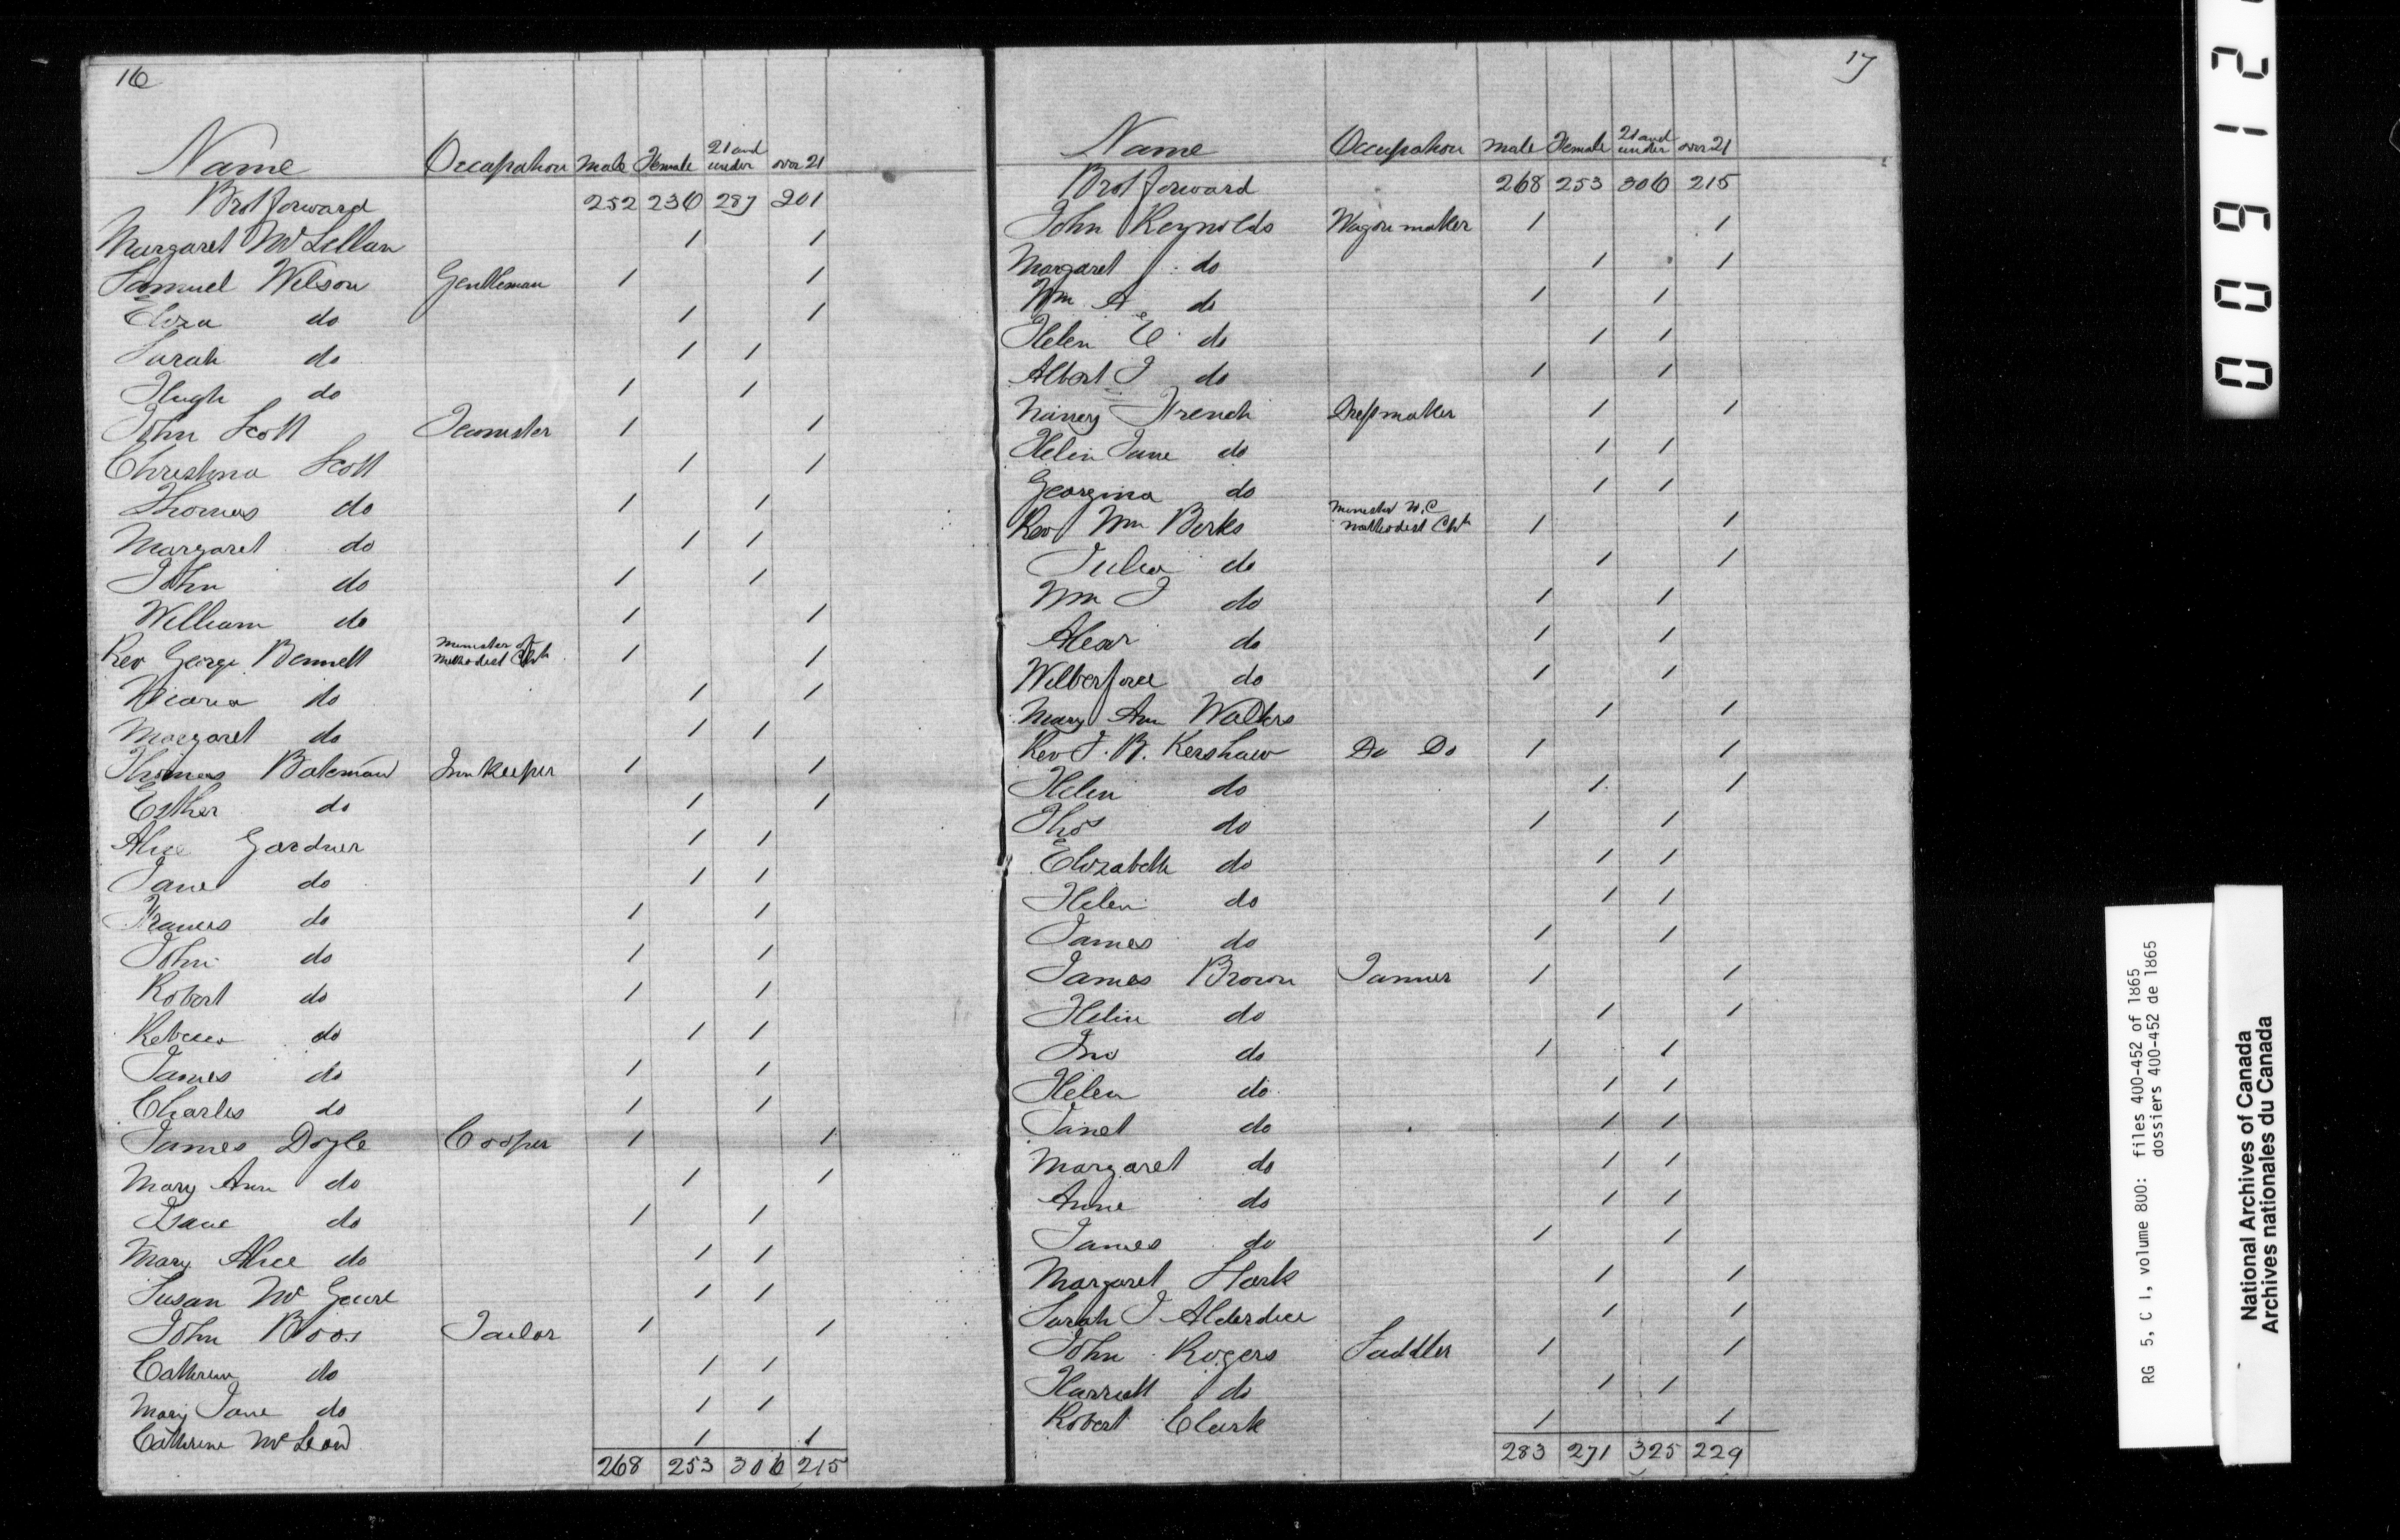 16
Name Occupation Male Female 21 and under over 21
Brot forward 252 236 287 201
Margaret McLellan 1 1
Samuel Wilson Gentleman 1 1
Eliza do 1 1
Sarah do 1 1
Hugh do 1 1
John Scott Teamster 1 1
Christina Scott 1 1
Thomas do 1 1
Margaret do 1 1
John do 1 1
William do 1 1
Rev George Bennett Minister of Methodist Chh 1 1
Maria do 1 1
Margaret do 1 1
Thomas Bateman Innkeeper 1 1
Esther do 1 1
Alice Gardner 1 1
Jane do 1 1
Frances do 1 1
John do 1 1
Robert do 1 1
Rebecca do 1 1
James do 1 1
Charles do 1 1
James Doyle Cooper 1 1
Mary Ann do 1 1
Isaac do 1 1
Mary Alice do 1 1
Susan McGuire 1 1
John Boos Tailor 1 1
Catherine do 1 1
Mary Jane do 1 1
Cathrine McLeod 1 1
268 253 306 215
17
Name Occupation Male Female 21 and under over 21
Brot forward 268 253 306 215
John Reynolds Wagon maker 1 1
Margaret do 1 1
Wm A do 1 1
Helen E do 1 1
Albert J do 1 1
Nancy French Dressmaker 1 1
Helen Jane do 1 1
Georgina do 1 1
Rev Wm Berks Minister N.C Methodist Chh 1 1
Julia do 1 1
Wm J do 1 1
Alexr do 1 1
Wilberforce do 1 1
Mary Ann Walters 1 1
Rev J. B. Kershaw Do Do 1 1
Helen do 1 1
Thos do 1 1
Elizabeth do 1 1
Helen do 1 1
James do 1 1
James Brown Tanner 1 1
Helen do 1 1
Jno do 1 1
Helen do 1 1
Janet do 1 1
Margaret do 1 1
Anne do 1 1
James do 1 1
Margaret Stark 1 1
Sarah J Alderdice 1 1
John Rogers Saddler 1 1
Harriett do 1 1
Robert Clark 1 1
283 271 325 229
00912
RG 5, C 1, volume 800: files 400-452 of 1865
dossiers 400-452 de 1865
National Archives of Canada
Archives nationales du Canada